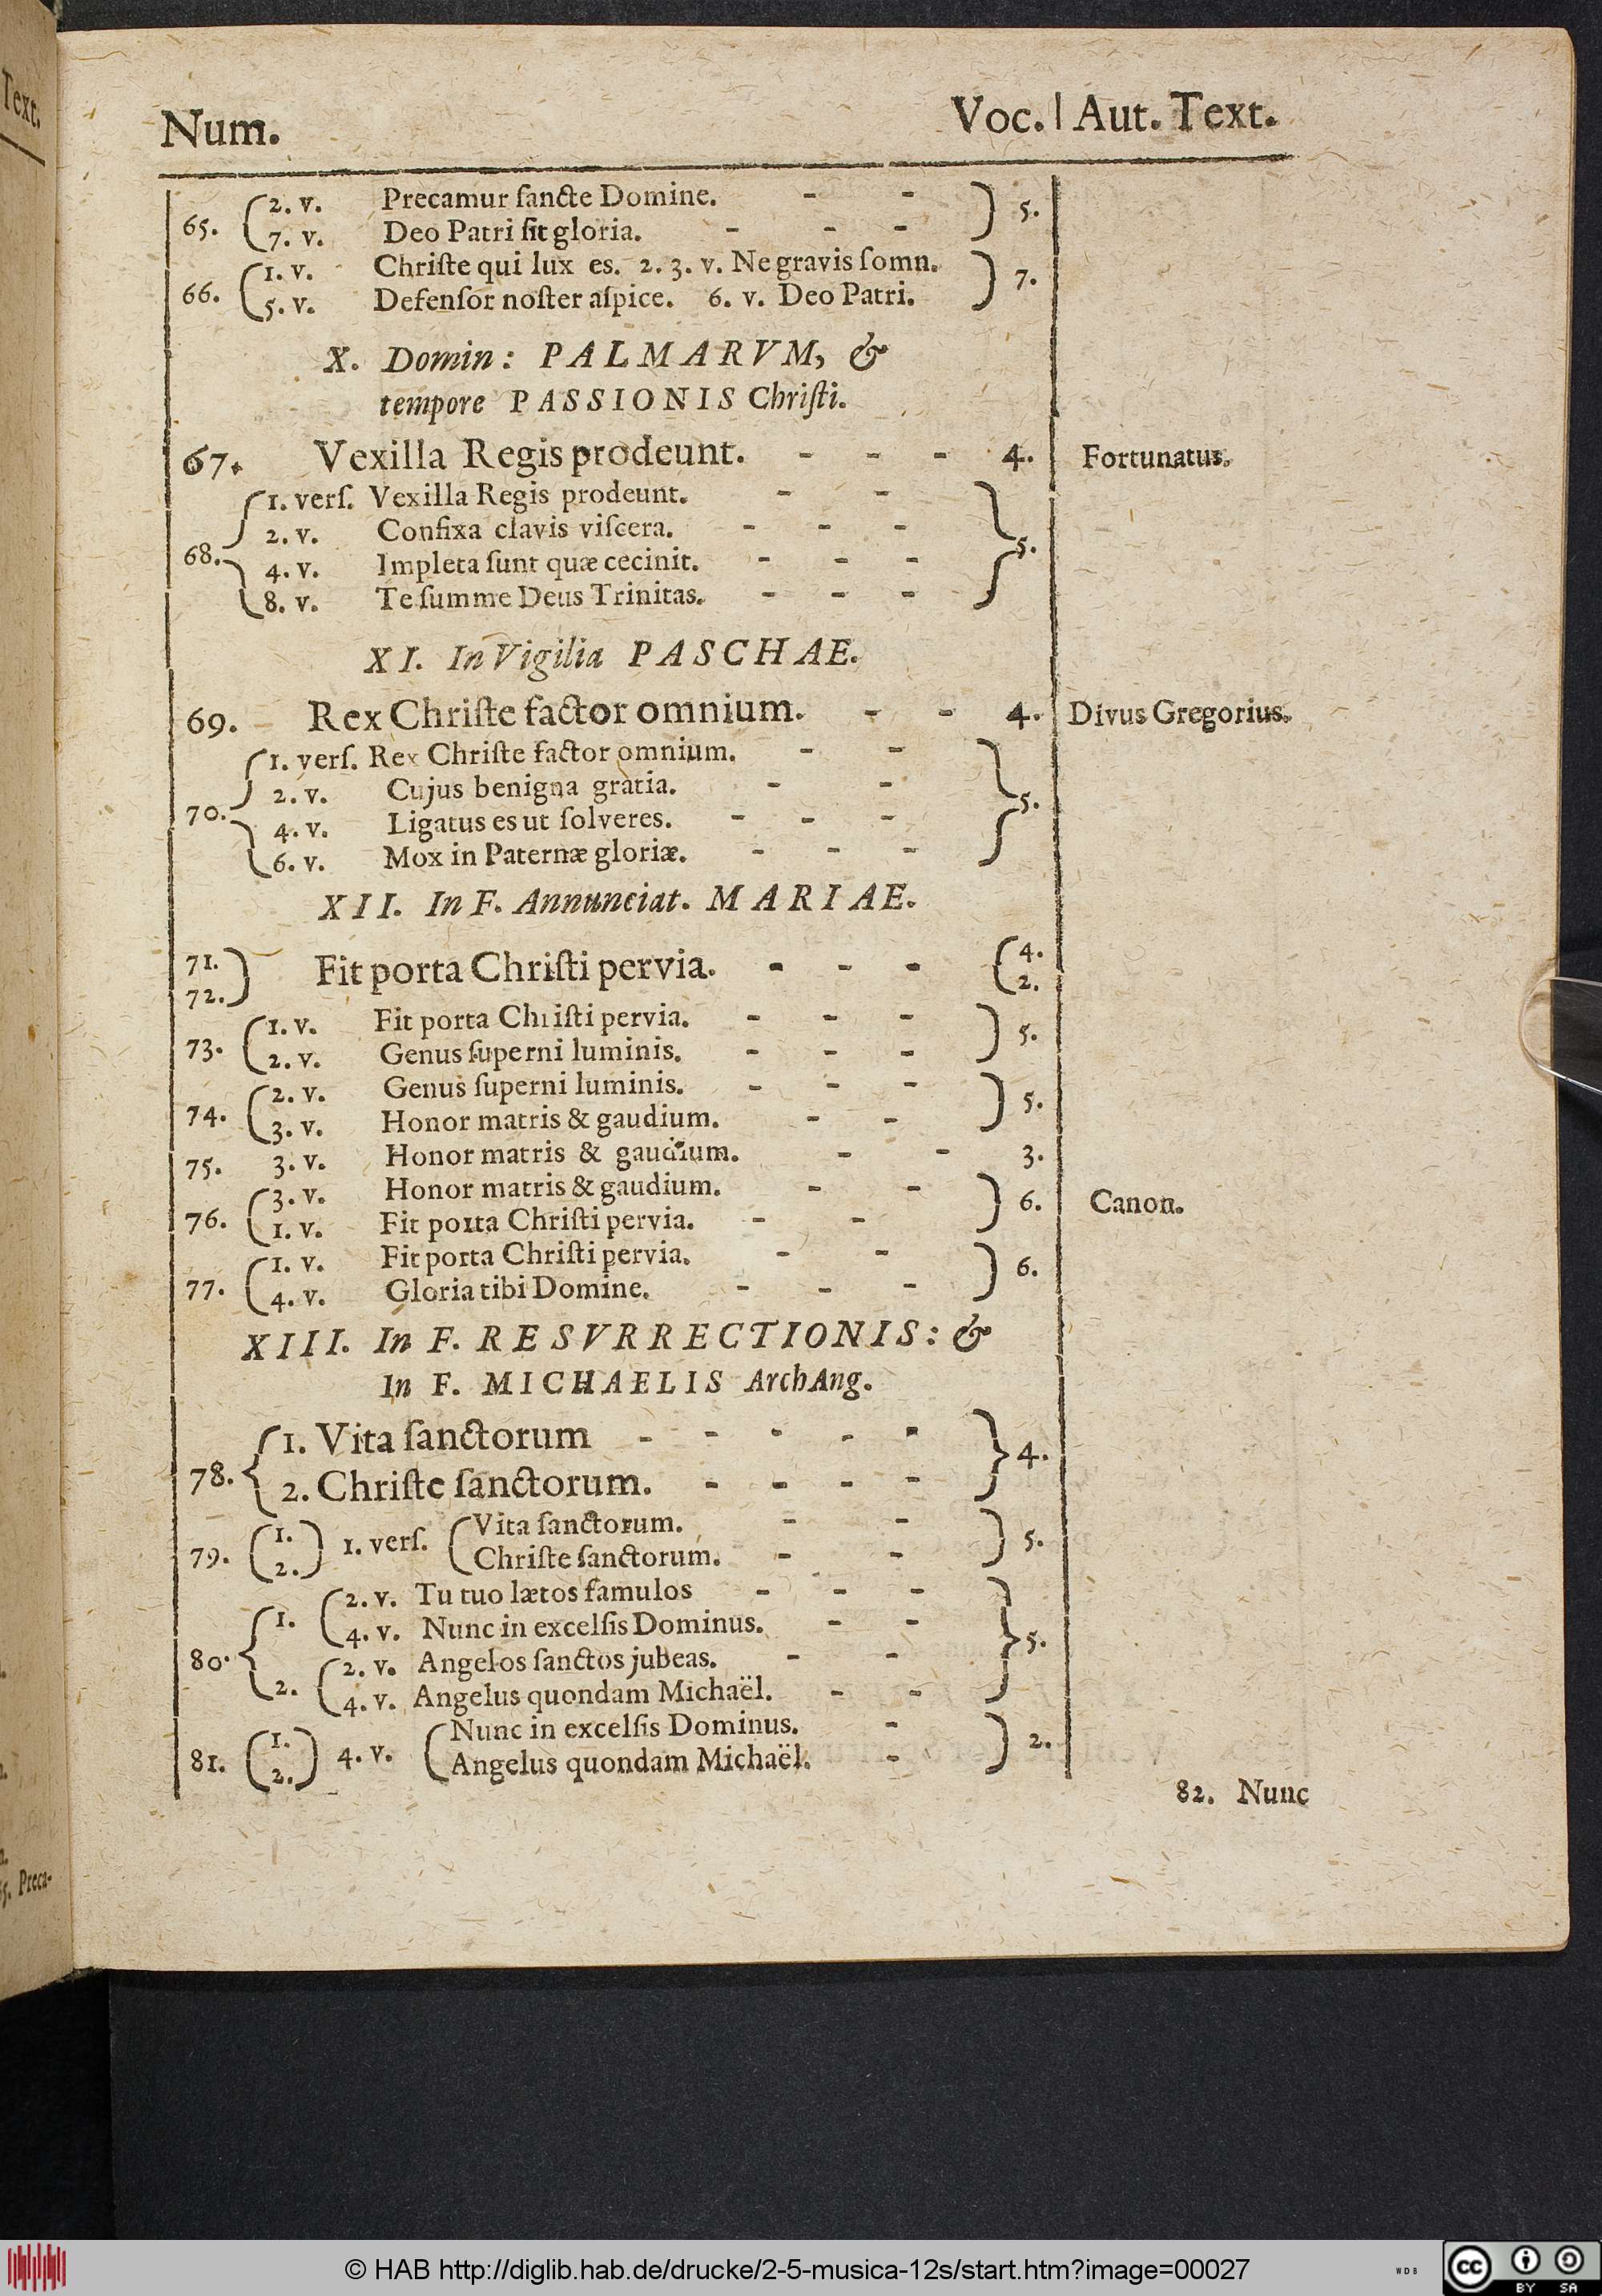 Text.
Num. Voc. | Aut. Text.
65. 2. v. Precamur ſancte Domine. - - 5.
7. v. Deo Patri ſit gloria. - - -
66. 1. v. Chriſte qui lux es. 2. 3. v. Ne gravis ſomn. 7.
5. v. Defenſor noſter aſpice. 6. v. Deo Patri.
X. Domin: PALMARVM, &
tempore PASSIONIS Chriſti.
67. Vexilla Regis prodeunt. - - - 4. Fortunatus.
1. verſ. Vexilla Regis prodeunt. - -
2. v. Confixa clavis viſcera. - - -
68. 5.
4. v. Impleta ſunt quæ cecinit. - - -
8. v. Te ſumme Deus Trinitas. - - -
XI. In Vigilia PASCHAE.
69. Rex Chriſte factor omnium. - - 4. Divus Gregorius.
1. verſ. Rex Chriſte factor omnium. - -
2. v. Cujus benigna gratia. - -
70. 5.
4. v. Ligatus es ut ſolveres. - - -
6. v. Mox in Paternæ gloriæ. - - -
XII. In F. Annunciat. MARIAE.
71. 4.
Fit porta Chriſti pervia. - - -
72. 2.
73. 1. v. Fit porta Chriſti pervia. - - - 5.
2. v. Genus ſuperni luminis. - - -
74. 2. v. Genus ſuperni luminis. - - - 5.
3. v. Honor matris & gaudium. - -
75. 3. v. Honor matris & gaudium. - - 3.
76. 3. v. Honor matris & gaudium. - - 6. Canon.
1. v. Fit porta Chriſti pervia. - -
77. 1. v. Fit porta Chriſti pervia. - - 6.
4. v. Gloria tibi Domine. - - -
XIII. In F. RESVRRECTIONIS: &
In F. MICHAELIS ArchAng.
1. Vita ſanctorum - - - - -
78. 4.
2. Chriſte ſanctorum. - - - -
79. 1. 1. verſ. Vita ſanctorum. - - 5.
2. Chriſte ſanctorum. - -
2. v. Tu tuo lætos famulos - - -
1.
4. v. Nunc in excelſis Dominus. - -
80. 5.
2. v. Angelos ſanctos jubeas. - -
2.
4. v. Angelus quondam Michaël. - -
81. 1. 4. v. Nunc in excelſis Dominus. - 2.
2. Angelus quondam Michaël. -
82. Nunc
Preca-
© HAB http://diglib.hab.de/drucke/2-5-musica-12s/start.htm?image=00027
WDB
cc BY SA